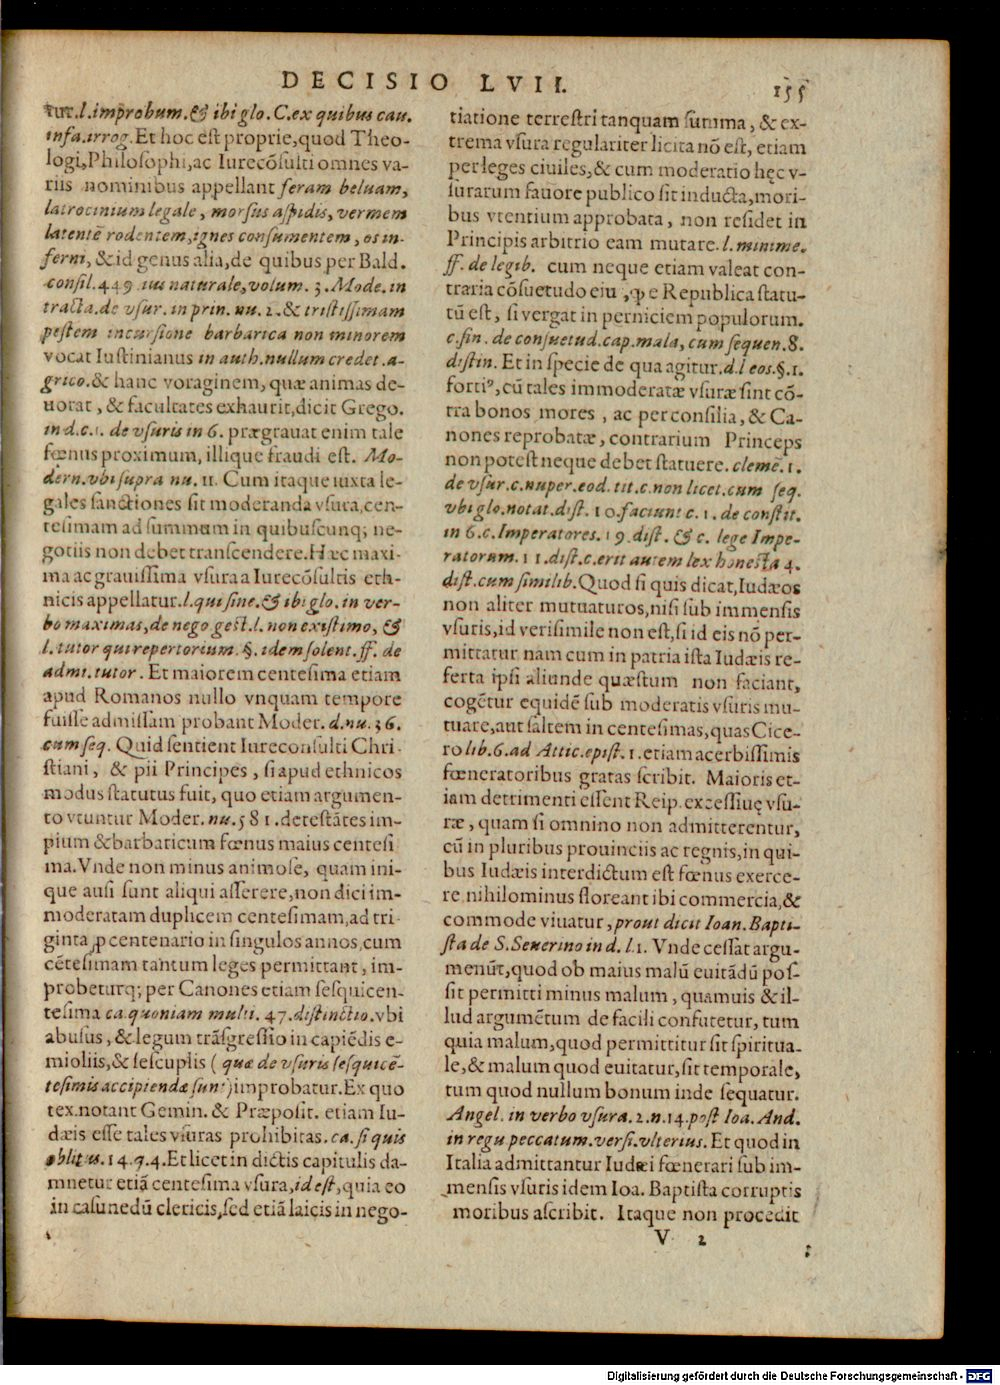 DECISIO LVII.
155
tur.l.improbum.& ibi glo.C.ex quibus cau.
infa.irrog.Et hoc est proprie,quod Theo-
logi,Philosophi,ac Iurecõsulti omnes va-
riis nominibus appellant feram beluam,
latrocinium legale, morsus aspidis, vermem
latentẽ rodentem,ignes consumentem, os in-
ferni, & id genus alia,de quibus per Bald.
consil.449.ius naturale,volum. 3.Mode.in
tracta.de vsur.in prin.nu.2.& tristissimam
pestem incursione barbarica non minorem
vocat Iustinianus in auth.nullum credet.a-
grico.& hanc voraginem, quæ animas de-
uorat, & facultates exhaurit,dicit Grego.
in d.c.1. de vsuris in 6. prægrauat enim tale
fœnus proximum, illique fraudi est. Mo-
dern.vbi supra nu.11. Cum itaque iuxta le-
gales sanctiones sit moderanda vsura,cen-
tesimam ad summum in quibuscunq; ne-
gotiis non debet transcendere.Hæc maxi-
ma ac grauissima vsura a Iurecõsultis eth-
nicis appellatur.l.qui sine.& ibi glo.in ver-
bo maximas,de nego gest.l.non existimo, &
l.tutor qui repertorium.§.idem solent.ff. de
admi.tutor. Et maiorem centesima etiam
apud Romanos nullo vnquam tempore
fuisse admissam probant Moder.d.nu.36.
cum seq. Quid sentient Iureconsulti Chri-
stiani, & pii Principes, si apud ethnicos
modus statutus fuit, quo etiam argumen-
to vtuntur Moder.nu.581.detestãtes im-
pium & barbaricum fœnus maius centesi
ma.Vnde non minus animose, quam ini-
que ausi sunt aliqui asserere,non dici im-
moderatam duplicem centesimam,ad tri-
ginta ꝓ centenario in singulos annos,cum
cẽtesimam tantum leges permittant, im-
probeturq; per Canones etiam sesquicen-
tesima ca.quoniam multi. 47.distinctio.vbi
abusus, & legum trãsgressio in capiẽdis e-
mioliis,& sescuplis (quæ de vsuris sesquicẽ-
tesimis accipiendæ sunt) improbatur.Ex quo
tex.notant Gemin. & Præposit. etiam Iu-
dæis esse tales vsuras prohibitas. ca. si quis
oblitus.14.q.4.Et licet in dictis capitulis da-
mnetur etiã centesima vsura,id est, quia eo
in casu nedũ clericis,sed etiã laicis in nego-
tiatione terrestri tanquam summa, & ex-
trema vsura regulariter licita nõ est, etiam
per leges ciuiles, & cum moderatio hęc v-
surarum fauore publico sit inducta,mori-
bus vtentium approbata, non residet in
Principis arbitrio eam mutare. l. minime.
ff. de legib. cum neque etiam valeat con-
traria cõsuetudo eiu , ꝙ e Republica statu-
tũ est, si vergat in perniciem populorum.
c.fin. de consuetud.cap.mala, cum sequen.8.
distin. Et in specie de qua agitur.d.l eos.§.1.
forti⁹, cũ tales immoderatæ vsuræ sint cõ-
tra bonos mores, ac per consilia, & Ca-
nones reprobatæ, contrarium Princeps
non potest neque debet statuere. clemẽ. 1.
de vsur.c.nuper.eod. tit.c.non licet.cum seq.
vbi glo.notat.dist.10.faciunt c. 1. de constit.
in 6.c.Imperatores.19.dist. & c. lege Impe-
ratorum.11.dist.c.erit autem lex honesta 4.
dist.cum similib.Quod si quis dicat,Iudæos
non aliter mutuaturos,nisi sub immensis
vsuris,id verisimile non est,si id eis nõ per-
mittatur nam cum in patria ista Iudæis re-
ferta ipsi aliunde quæstum non faciant,
cogẽtur equidẽ sub moderatis vsuris mu-
tuare,aut saltem in centesimas,quas Cice-
ro lib.6.ad Attic.epist.1.etiam acerbissimis
fœneratoribus gratas scribit. Maioris et-
iam detrimenti essent Reip. excessiuę vsu-
ræ, quam si omnino non admitterentur,
cũ in pluribus prouinciis ac regnis,in qui-
bus Iudæis interdictum est fœnus exerce-
re nihilominus floreant ibi commercia,&
commode viuatur, prout dicit Ioan. Bapti-
sta de S.Seuerino in d. l.1. Vnde cessat argu-
menũt,quod ob maius malũ euitãdũ pos-
sit permitti minus malum, quamuis & il-
lud argumẽtum de facili confutetur, tum
quia malum,quod permittitur sit spiritua-
le,& malum quod euitatur,sit temporale,
tum quod nullum bonum inde sequatur.
Angel. in verbo vsura. 2.n.14.post Ioa. And.
in regu peccatum.versi.vlterius.Et quod in
Italia admittantur Iudæi fœnerari sub im-
mensis vsuris idem Ioa. Baptista corruptis
moribus ascribit. Itaque non procedit
V 2
Digitalisierung gefördert durch die Deutsche Forschungsgemeinschaft - DFG